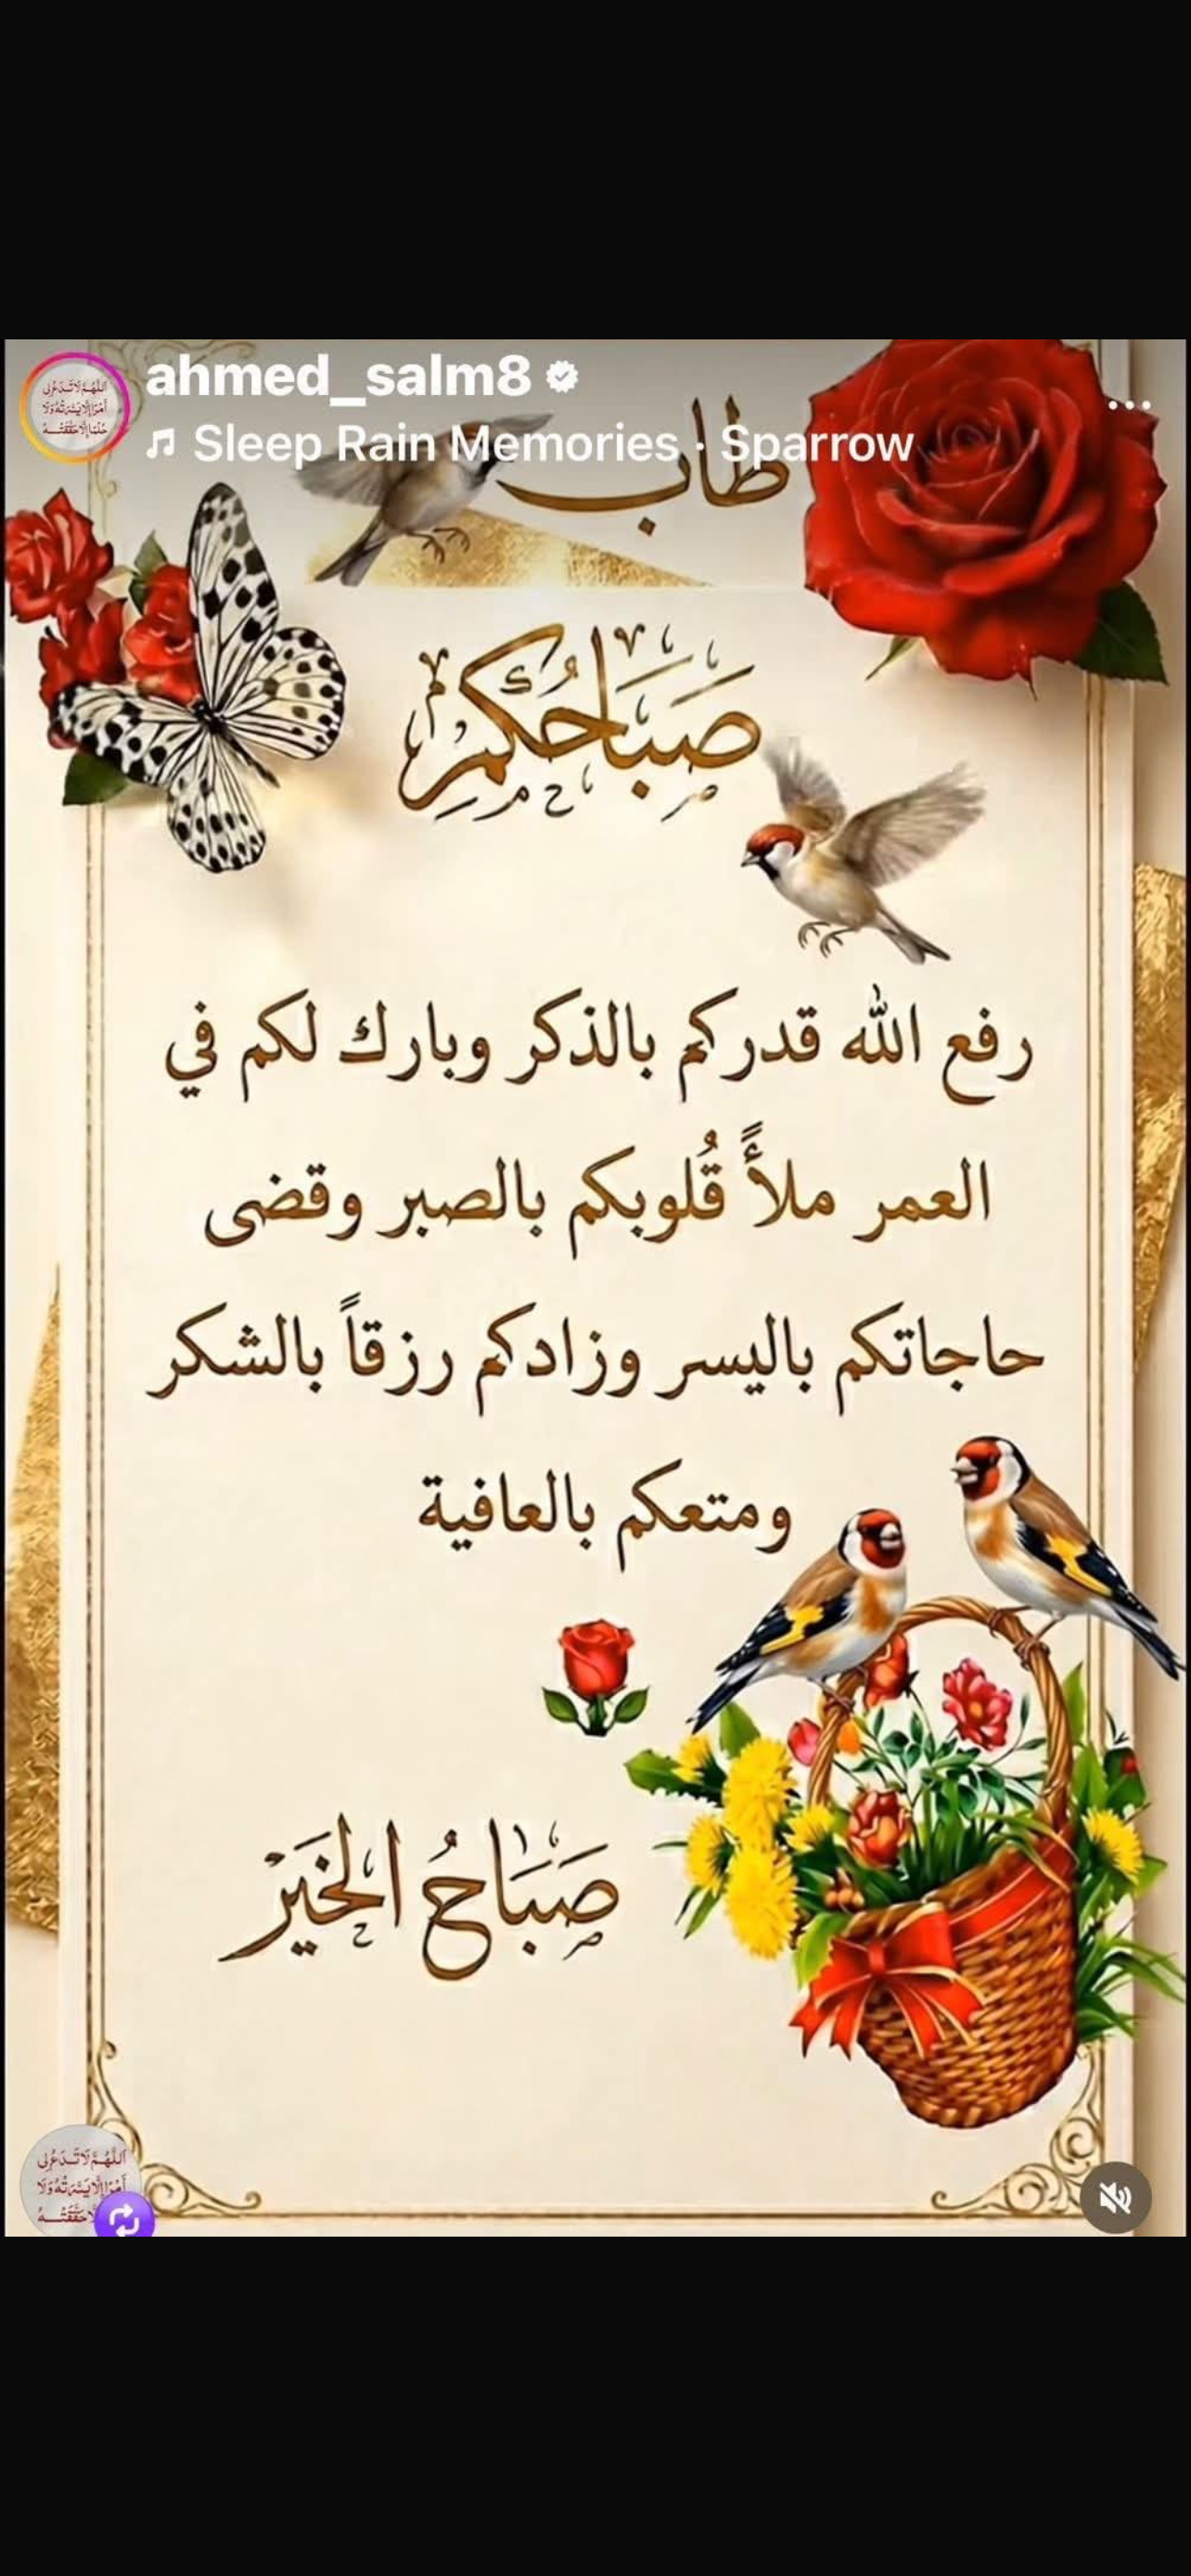 ahmed_salm8
Sleep Rain Memories · Sparrow
طاب
صَبَاحُكُم
رفع الله قدركم بالذكر وبارك لكم في
العمر ملأً قُلوبكم بالصبر وقضى
حاجاتكم باليسر وزادكم رزقاً بالشكر
ومتعكم بالعافية
صَبَاحُ الخَيْر